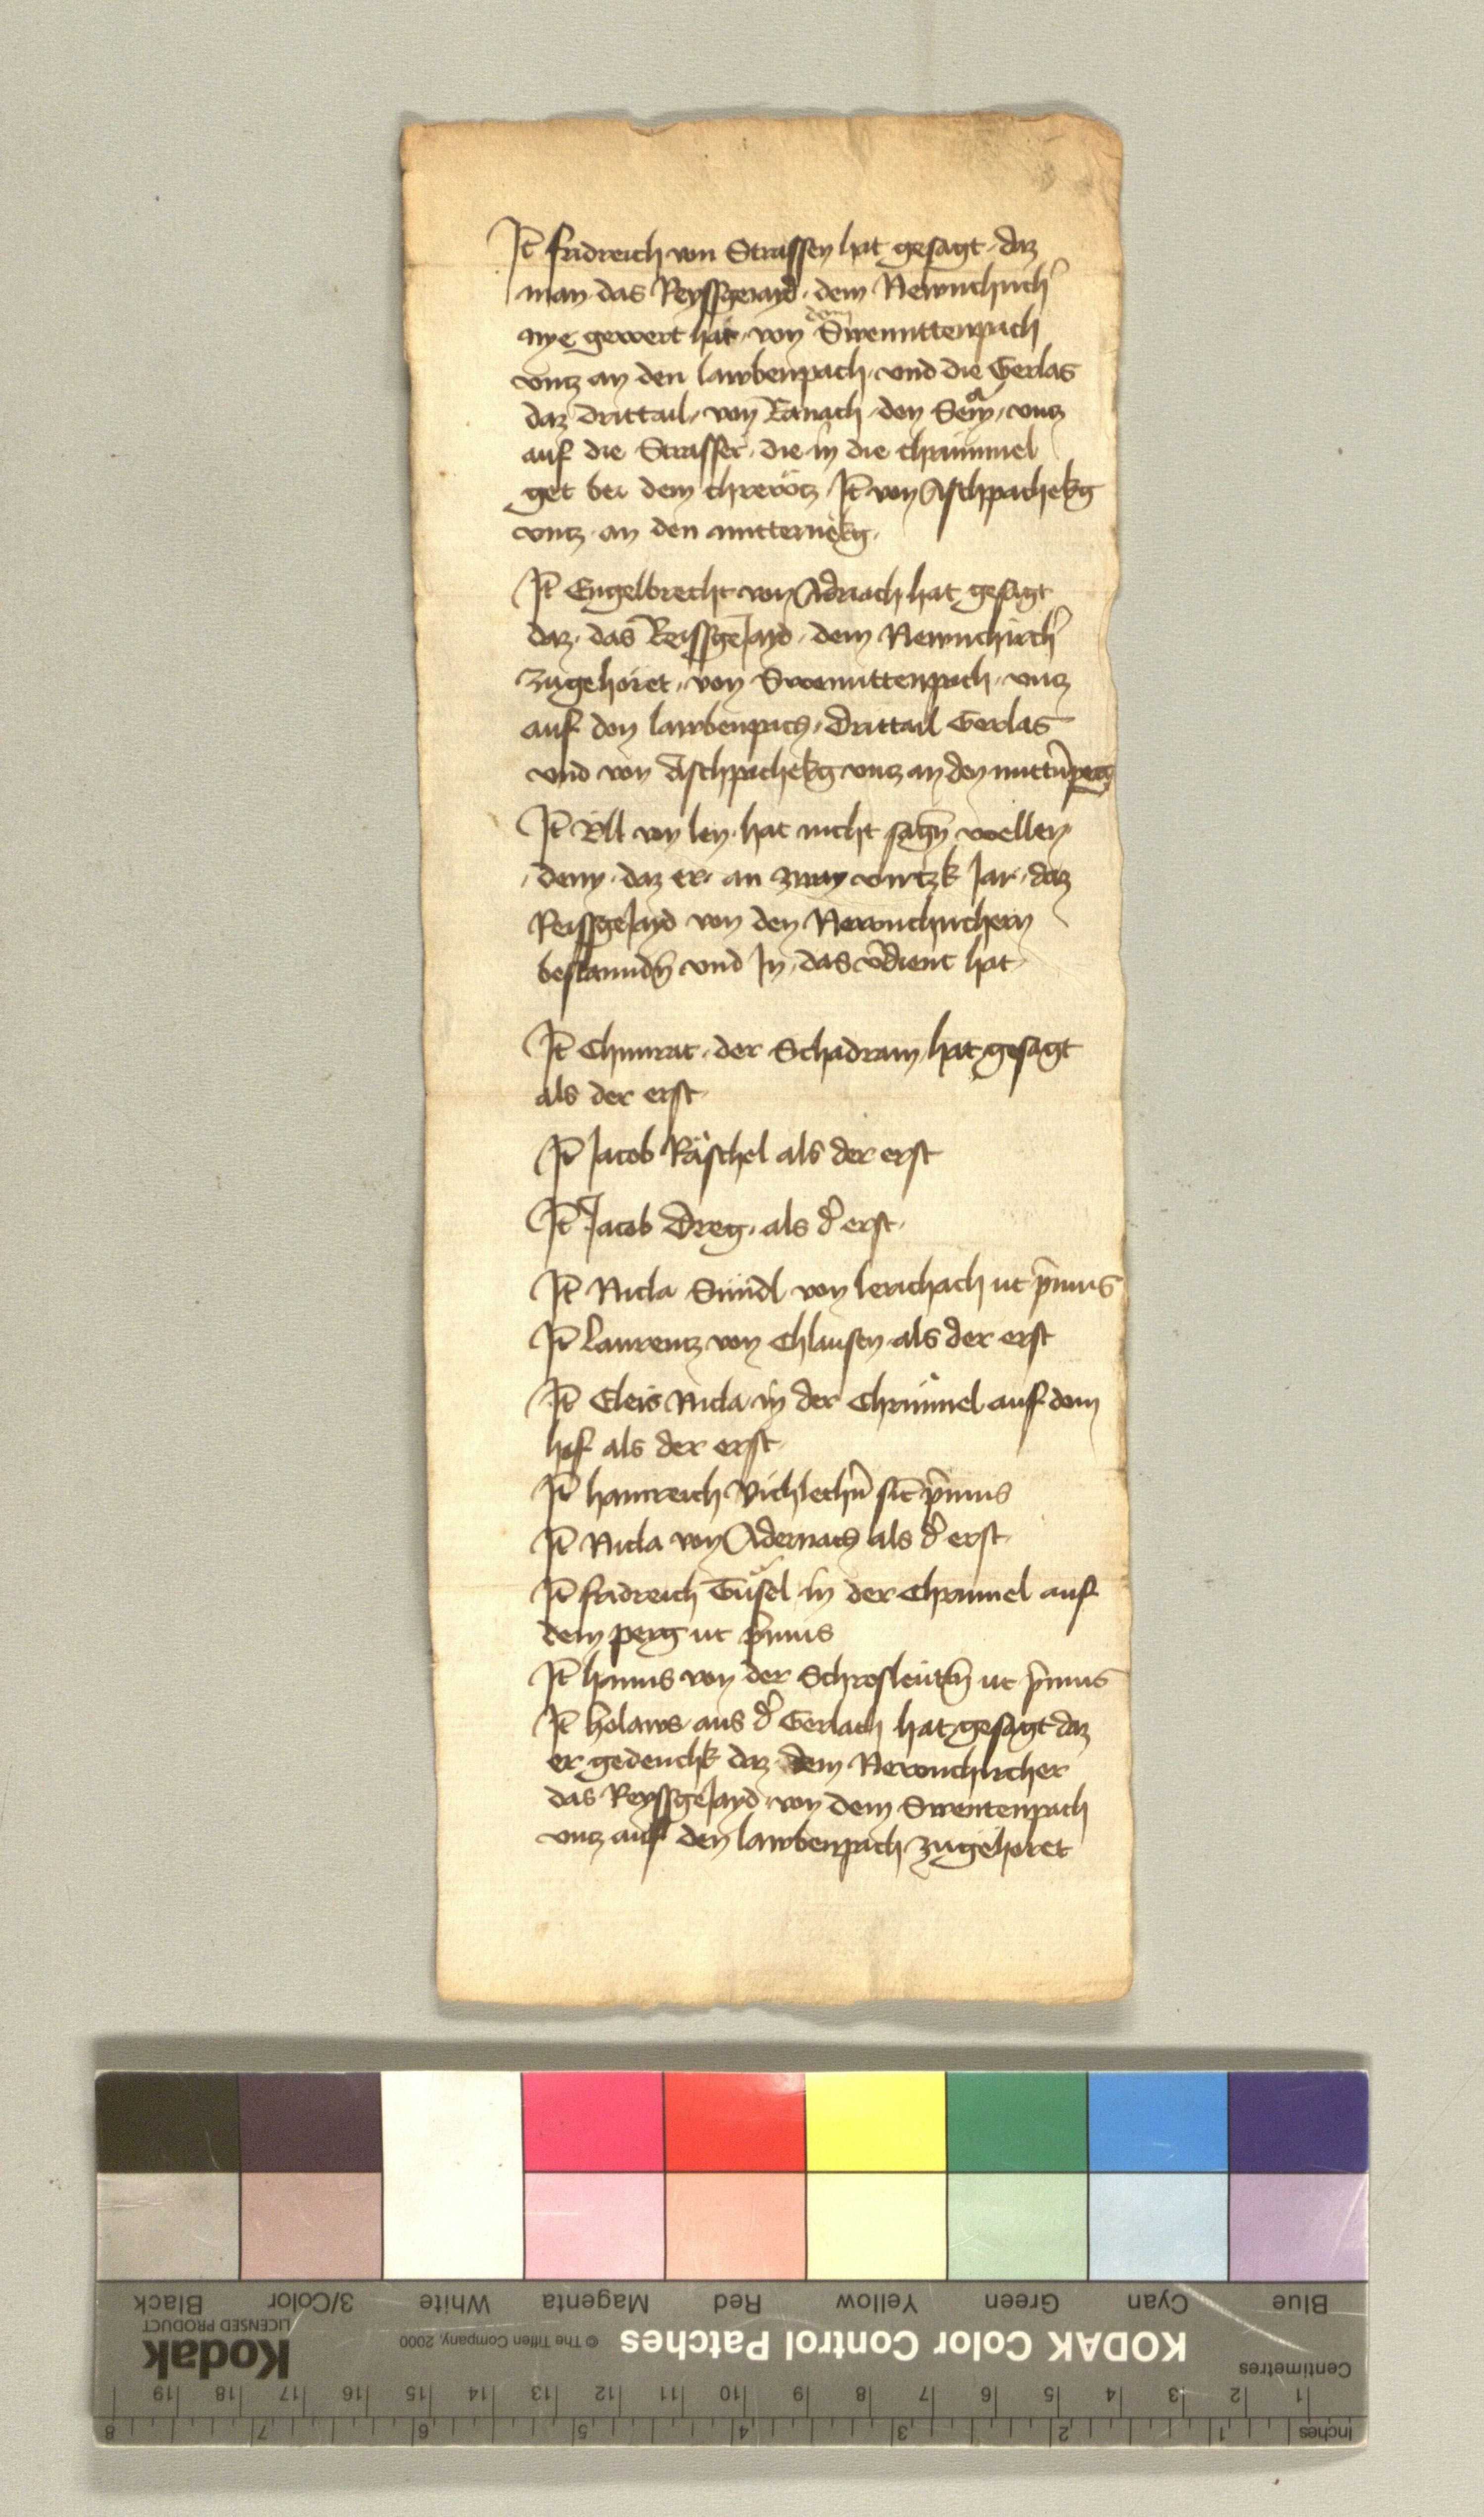 It̄ fridreich von Strassen hat gesagt daz
man das Reyssgeiayd dem Newnchirch̄
nye gewert hat von dem Swemittenpach
vntz an den lawbenpach vnd die Gerlas
daz drittail von Ranach den vntz
auf die Strasser die in die chrimmel
get bei dem chrewtz It̄ von Aschpachekg
vntz an den mitternekg
It̄ Engelbrecht von Adnach hat gesagt
daz das Reissgejayd dem Newnchirch̄
zugehoret von Swemittenpach vntz
auf den lawbenpach drittail Gerlas
vnd von Aschpachekg vntz an den mittn̄perg
It̄ Vll von len hat nicht sagn̄ wellen
denn daz er an zway virtzk Jar daz
ReissgeJayd von den Newnchirchern
bestanndn̄ vnd In das v̄dient hat
It̄ Chunrat der Schadram hat gesagt
als der erst
It̄ Jacob Räschel als der erst
It̄ Jacob Dreg als d̄ erst
It̄ Nicla Sumdl von lerichach ut p̄mus
It̄ Laurentz von Chlausen als der erst
It̄ Cleis Nicla in der Chrimmel auf dem
hof als der erst
It̄ hainreich Vichlechn̄ sic̄ p̄mus
It̄ Nicla von Adernach als d̄ erst
It̄ fridreich Gusel in der Chrimmel auf
dem perg ut p̄mus
It̄ hanns von der Schrosleittn̄ ut p̄mus
It̄ holaws aus d̄ Gerlach hat gesagt daz
er gedenchk daz dem Newnchircher
das ReyssgeJayd von dem Swentenpach
vntz auf den lawbenpach zugehoret
KODAK Color Control Patches
© The Tiffen Company, 2000
Kodak
LICENSED PRODUCT
Blue Cyan Green Yellow Red Magenta White 3/Color Black
Centimetres
1 2 3 4 5 6 7 8 9 10 11 12 13 14 15 16 17 18 19
Inches
1 2 3 4 5 6 7 8